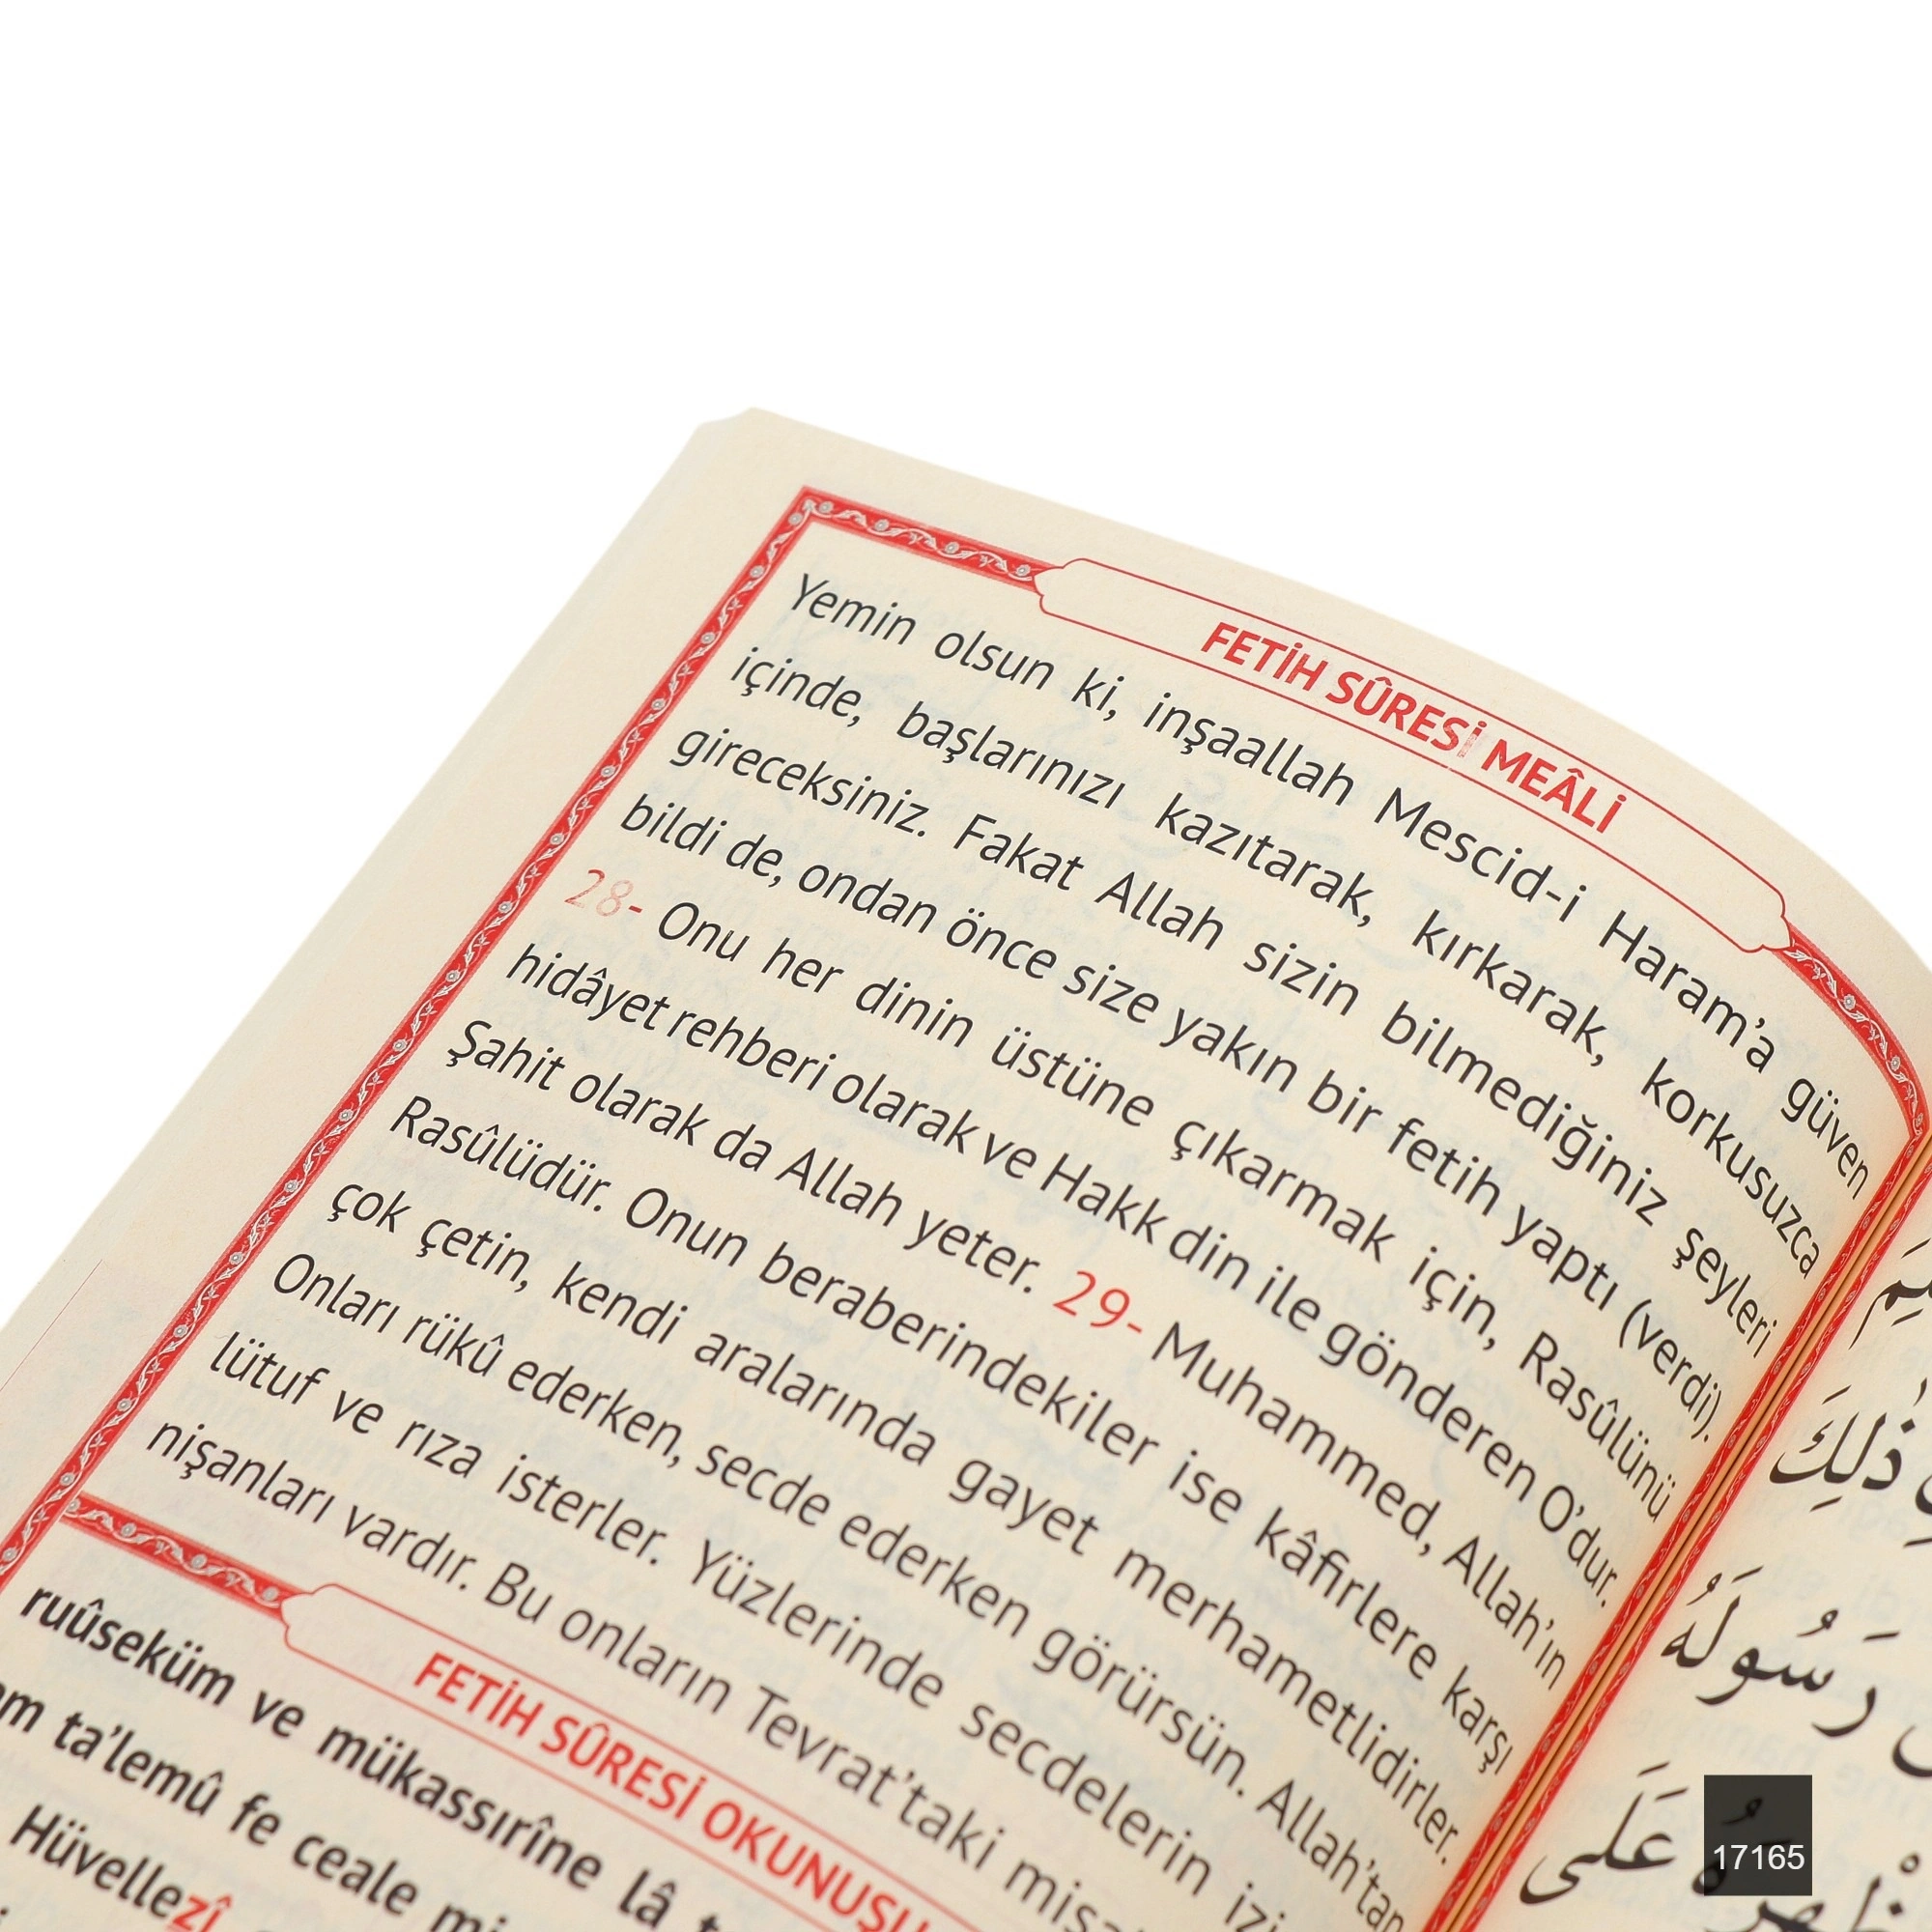 FETİH SÛRESİ MEÂLİ
Yemin olsun ki, inşaallah Mescid-i Haram'a güven
içinde, başlarınızı kazıtarak, kırkarak, korkusuzca
gireceksiniz. Fakat Allah sizin bilmediğiniz şeyleri
bildi de, ondan önce size yakın bir fetih yaptı (verdi).
28- Onu her dinin üstüne çıkarmak için, Rasûlünü
hidâyet rehberi olarak ve Hakk din ile gönderen O'dur.
Şahit olarak da Allah yeter. 29- Muhammed, Allah'ın
Rasûlüdür. Onun beraberindekiler ise kâfirlere karşı
çok çetin, kendi aralarında gayet merhametlidirler.
Onları rükû ederken, secde ederken görürsün. Allah'tan
lütuf ve rıza isterler. Yüzlerinde secdelerin
nişanları vardır. Bu onların Tevrat'taki
FETİH SÛRESİ OKUNUŞU
ruûseküm ve mükassırîne lâ
ta'lemû fe ceale
Hüvellezî
ذٰلِكَ
رَسُولَهُ
عَلَى
17165